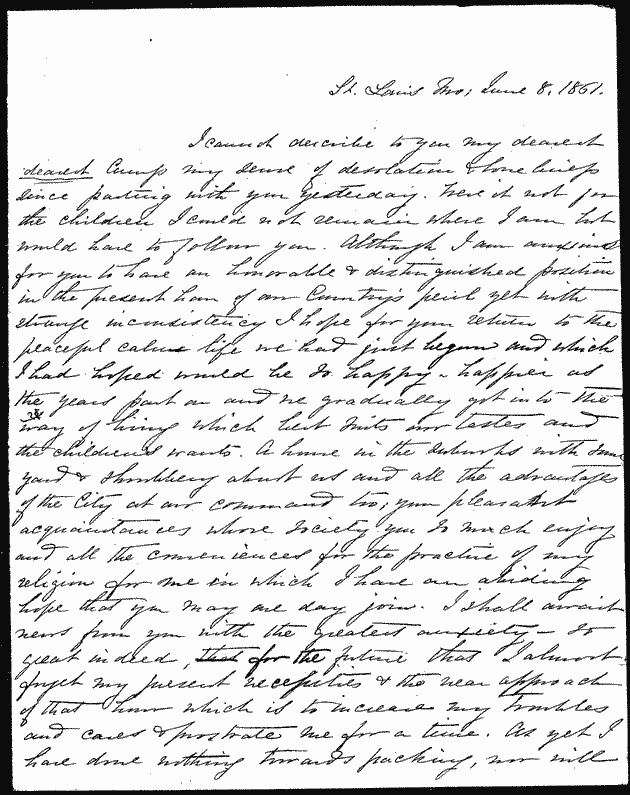 St. Louis Mo; June 8. 1861.
I cannot describe to you my dearest
dearest Cump my sense of desolation & loneliness
since parting with you yesterday. Were it not for
the children I could not remain where I am but
would have to follow you. Although I am anxious
for you to have an honorable & distinguished position
in the present hour of our Country's peril yet with
strange inconsistency I hope for your return to the
peaceful calm life we had just begun and which
I had hoped would be so happy - happier as
the years past on and we gradually got into the
way of living which best suits our tastes and
the childrens wants. A home in the suburbs with some
yard & shrubbery about us and all the advantages
of the City at our command too; your pleasant
acquaintances whose society you so much enjoy
and all the conveniences for the practice of my
religion for me in which I have an abiding
hope that you may one day join. I shall await
news from you with the greatest anxiety - so
great indeed, that for the future that I almost
forget my present necessities & the near approach
of that hour which is to increase my troubles
and cares & prostrate me for a time. As yet I
have done nothing towards packing, nor will